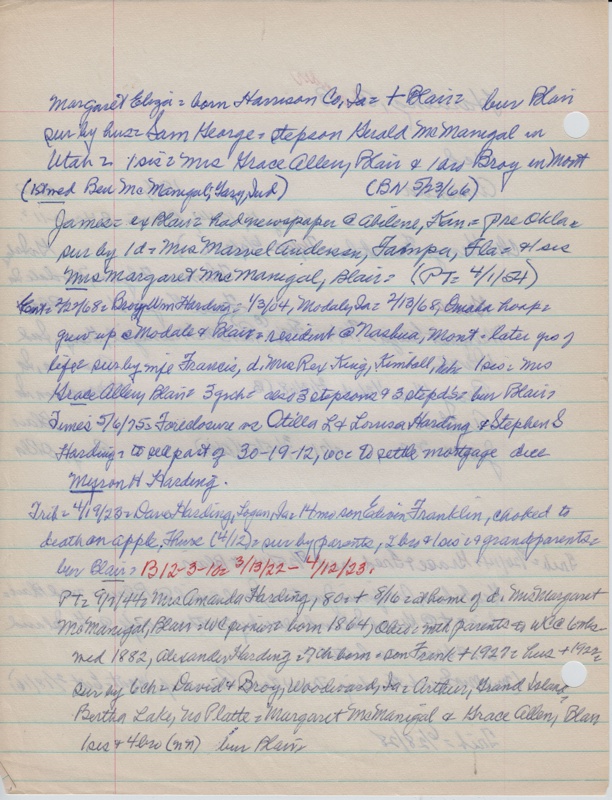 Margaret Eliza = born Harrison Co, Ia = + Blair = bur Blair
sur by hus = Sam George = stepson Gerald McManigal in
Utah = 1 sis = Mrs Grace Allen, Blair & 1 bro Broy in Mont
(1st med Ben McManigal, Gary, Ind) (BN 5/23/66)
James = ex Blair = had newspaper @ Abilene, Kan = pre Okla =
sur by 1 d = Mrs Marvel Anderson, Tampa, Fla = & 1 sis
Mrs Margaret McManigal, Blair = (PT = 4/1/54)
2/22/68 = Broy Wm Harding = 1/3/04, Modale, Ia = 2/13/68, Omaha hosp =
grew up @ Modale & Blair = resident @ Nashua, Mont = later yrs of
life = sur by wife Francis, d. Mrs Rex King, Kimball, 1 sis = Mrs
Grace Allen, Blair = 3 grch = also 3 stepsons & 3 stepd's = bur Blair =
Times 5/6/25 = Foreclosure vs Otilla L & Louisa Harding & Stephen S
Harding = to sell part of 30-19-12, WC = to settle mortgage due
Myron H Harding.
Trib = 4/19/23 = Dave Harding, Logan, Ia = 14 mo son Edwin Franklin, choked to
death on apple, Thurs (4/12) = sur by parents, 2 bro & 1 sis & grandparents =
bur Blair = B12-3-10 = 3/13/22 - 4/12/23.
PT = 9/7/44 = Mrs Amanda Harding, 80 = + 8/16 = at home of d. Mrs Margaret
McManigal, Blair = WC pioneer = born 1864, Ohio = with parents to WC
med 1882, Alexander Harding = 7 ch born = son Frank + 1927 = hus + 1922 =
sur by 6 ch = David & Broy, Woodward, Ia = Arthur, Grand Island =
Bertha Lake, No Platte = Margaret McManigal & Grace Allen, Blair
1 sis & 4 bro (nn) bur Blair =